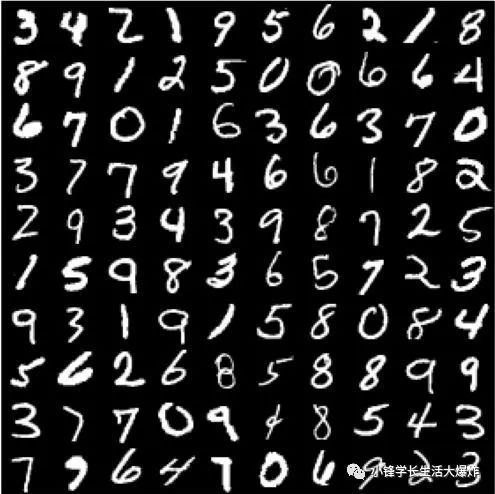 3 4 2 1 9 5 6 2 1 8
8 9 1 2 5 0 0 6 6 4
6 7 0 1 6 3 6 3 7 0
3 7 7 9 4 6 6 1 8 2
2 9 3 4 3 9 8 7 2 5
1 5 9 8 3 6 5 7 2 3
9 3 1 9 1 5 8 0 8 4
5 6 2 6 8 5 8 8 9 9
3 7 7 0 9 4 8 5 4 3
7 9 6 4 7 0 6 9 2 3
小锋学长生活大爆炸